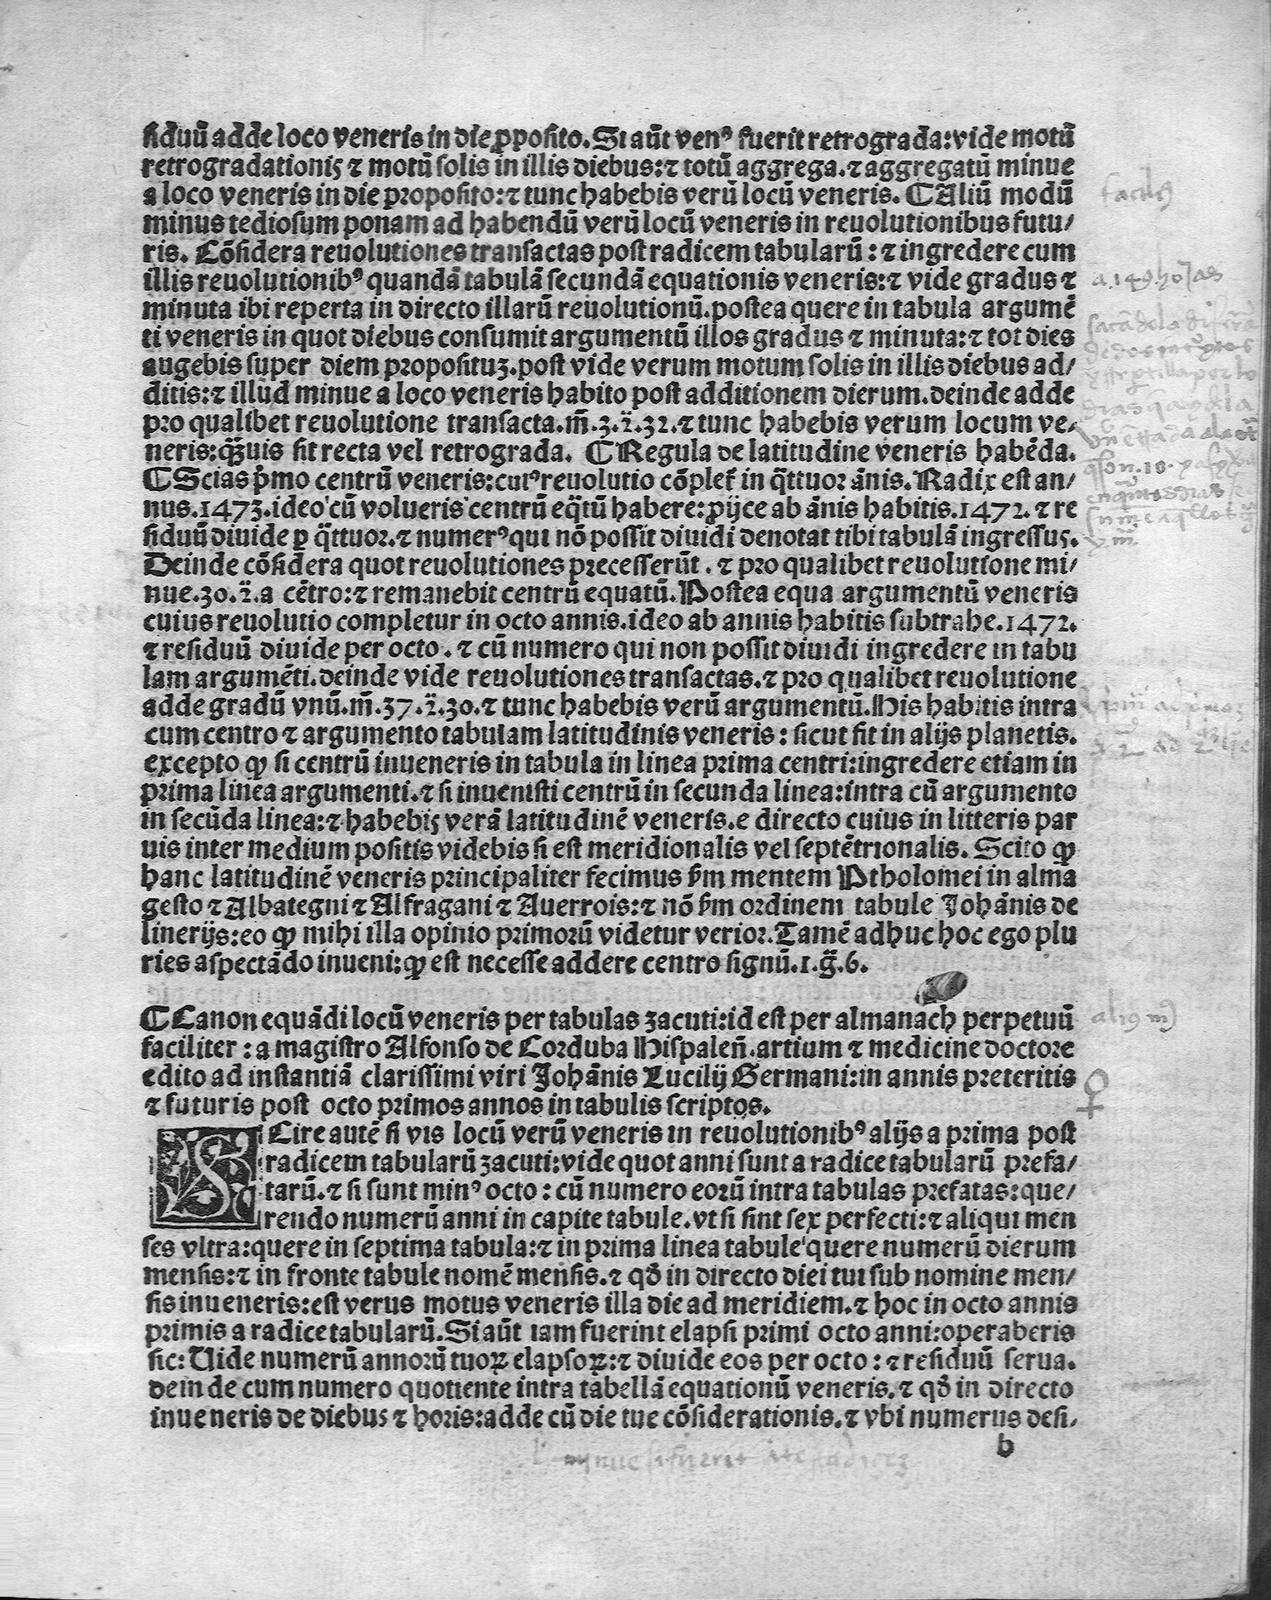 ſiduū adde loco veneris in die ꝓpoſito. Si aūt venꝰ fuerit retrograda: vide motū
retrogradationis ⁊ motū ſolis in illis diebus: ⁊ totū aggrega. ⁊ aggregatū minue
a loco veneris in die propoſito: ⁊ tunc habebis verū locū veneris. ¶ Aliū modū
minus tedioſum ponam ad habendū verū locū veneris in reuolutionibus futu/
ris. Cōſidera reuolutiones tranſactas poſt radicem tabularū: ⁊ ingredere cum
illis reuolutionibꝰ quandā tabulā ſecundā equationis veneris: ⁊ vide gradus ⁊
minuta ibi reperta in directo illarū reuolutionū. poſtea quere in tabula argumē
ti veneris in quot diebus conſumit argumentū illos gradus ⁊ minuta: ⁊ tot dies
augebis ſuper diem propoſituꝫ. poſt vide verum motum ſolis in illis diebus ad/
ditis: ⁊ illud minue a loco veneris habito poſt additionem dierum. deinde adde
pro qualibet reuolutione tranſacta. m̄. 3. 2̄. 32. ⁊ tunc habebis verum locum ve/
neris: qꝫuis ſit recta vel retrograda. ¶ Regula de latitudine veneris habēda.
¶ Scias pͥmo centrū veneris: cuiꝰ reuolutio cōplet̄ in q̄ttuor ānis. Radix eſt an/
nus. 1473. ideo cū volueris centrū eq̄tū habere: ꝓijce ab ānis habitis. 1472. ⁊ re
ſiduū diuide ꝑ q̄ttuor. ⁊ numerꝰ qui nō poſſit diuidi denotat tibi tabulā ingreſſus.
Deinde cōſidera quot reuolutiones preceſſerūt. ⁊ pro qualibet reuolutione mi/
nue. 30. 2̄. a cētro: ⁊ remanebit centrū equatū. Poſtea equa argumentū veneris
cuius reuolutio completur in octo annis. ideo ab annis habitis ſubtrahe. 1472.
⁊ reſiduū diuide per octo. ⁊ cū numero qui non poſſit diuidi ingredere in tabu
lam argumēti. deinde vide reuolutiones tranſactas. ⁊ pro qualibet reuolutione
adde gradū vnū. m̄. 37. 2̄. 30. ⁊ tunc habebis verū argumentū. His habitis intra
cum centro ⁊ argumento tabulam latitudinis veneris: ſicut fit in alijs planetis.
excepto ꝙ ſi centrū inueneris in tabula in linea prima centri: ingredere etiam in
prima linea argumenti. ⁊ ſi inueniſti centrū in ſecunda linea: intra cū argumento
in ſecūda linea: ⁊ habebis verā latitudinē veneris. e directo cuius in litteris par
uis inter medium poſitis videbis ſi eſt meridionalis vel ſeptētrionalis. Scito ꝙ
hanc latitudinē veneris principaliter fecimus ẜm mentem Ptholomei in alma
geſto ⁊ Albategni ⁊ Alfragani ⁊ Auerrois: ⁊ nō ẜm ordinem tabule Johānis de
linerijs: eo ꝙ mihi illa opinio primorū videtur verior. Tamē adhuc hoc ego plu
ries aſpectādo inueni: ꝙ eſt neceſſe addere centro ſignū. 1. g̈. 6.
¶ Canon equādi locū veneris per tabulas zacuti: id eſt per almanach perpetuū
faciliter: a magiſtro Alfonſo de Corduba Hiſpaleñ. artium ⁊ medicine doctore
edito ad inſtantiā clariſſimi viri Johānis Lucilij Germani: in annis preteritis
⁊ futuris poſt octo primos annos in tabulis ſcriptos.
SCire autē ſi vis locū verū veneris in reuolutionibꝰ alijs a prima poſt
radicem tabularū zacuti: vide quot anni ſunt a radice tabularū prefa/
tarū. ⁊ ſi ſunt minꝰ octo: cū numero eorū intra tabulas prefatas: que/
rendo numerū anni in capite tabule. vt ſi ſint ſex perfecti: ⁊ aliqui men
ſes vltra: quere in ſeptima tabula: ⁊ in prima linea tabule quere numerū dierum
menſis: ⁊ in fronte tabule nomē menſis. ⁊ qď in directo diei tui ſub nomine men/
ſis inueneris: eſt verus motus veneris illa die ad meridiem. ⁊ hoc in octo annis
primis a radice tabularū. Si aūt iam fuerint elapſi primi octo anni: operaberis
ſic: Uide numerū annorū tuoꝝ elapſoꝝ: ⁊ diuide eos per octo: ⁊ reſiduū ſerua.
deinde cum numero quotiente intra tabellā equationū veneris. ⁊ qď in directo
inueneris de diebus ⁊ horis: adde cū die tue cōſiderationis. ⁊ vbi numerus deſi/
b
♀